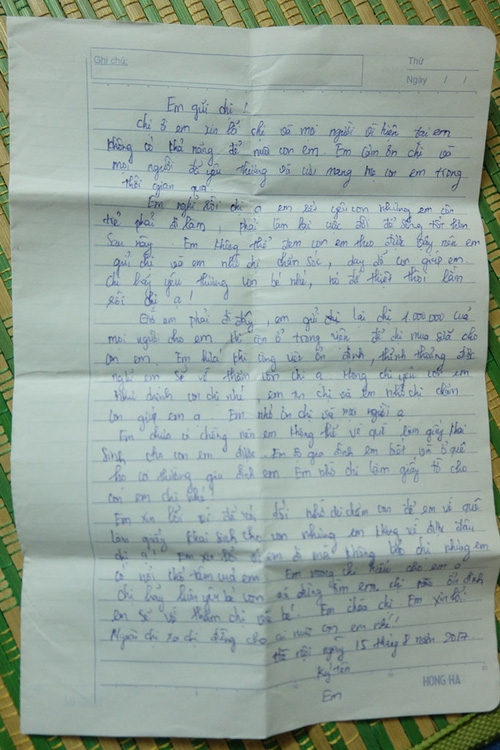 Ghi chú:
Thứ
Ngày / /
Em gửi chị!
Chị ơi em xin lỗi chị và mọi người vì hiện tại em
không có khả năng để nuôi con em. Em cảm ơn chị và
mọi người đã yêu thương và cưu mang mẹ con em trong
thời gian qua
Em nghĩ rồi chị ạ em rất yêu con nhưng em còn
trẻ phải đi làm, phải làm lại cuộc đời để sống tốt hơn
sau này. Em không thể đem con em theo được bây giờ nên em
gửi chị và em nhờ chị chăm sóc, dạy dỗ con giúp em
Chị hãy yêu thương con bé nhé, nó đã thiệt thòi lắm
rồi chị ạ!
Giờ em phải đi đây, em gửi lại chị 1.000.000 của
mọi người cho em khi còn ở trong viện để chị mua sữa cho
con em. Em khi công việc ổn định, thỉnh thoảng được
nghỉ em sẽ về thăm con chị ạ. Mong chị yêu con em
như chính con chị nhé, em tin chị và em nhờ chị chăm
con giúp em ạ. Em nhờ ơn chị và mọi người ạ
Em chưa có chồng nên em không thể về quê làm giấy khai
sinh cho con em được. Em sợ gia đình em biết và ở quê
họ cười gia đình em. Em nhờ chị làm giấy tờ cho
con em chị nhé
Em xin lỗi vì đã nói dối nhờ chị chăm con để em về quê
làm giấy khai sinh cho con nhưng em không về được đâu
chị ạ. Em xin lỗi vì em đi mà không bảo chị nhưng em
có nỗi khổ tâm của em. Em mong chị hiểu cho em ạ
Chị hãy yêu bé con và đừng tìm em, chị nhé ổn định
em sẽ về thăm chị và bé. Em chào chị. Em xin lỗi.
Người chị mà chị đừng cho ai nuôi con em nhé!
Hà Nội ngày 15 tháng 8 năm 2017
Ký tên
Em
HONG HA